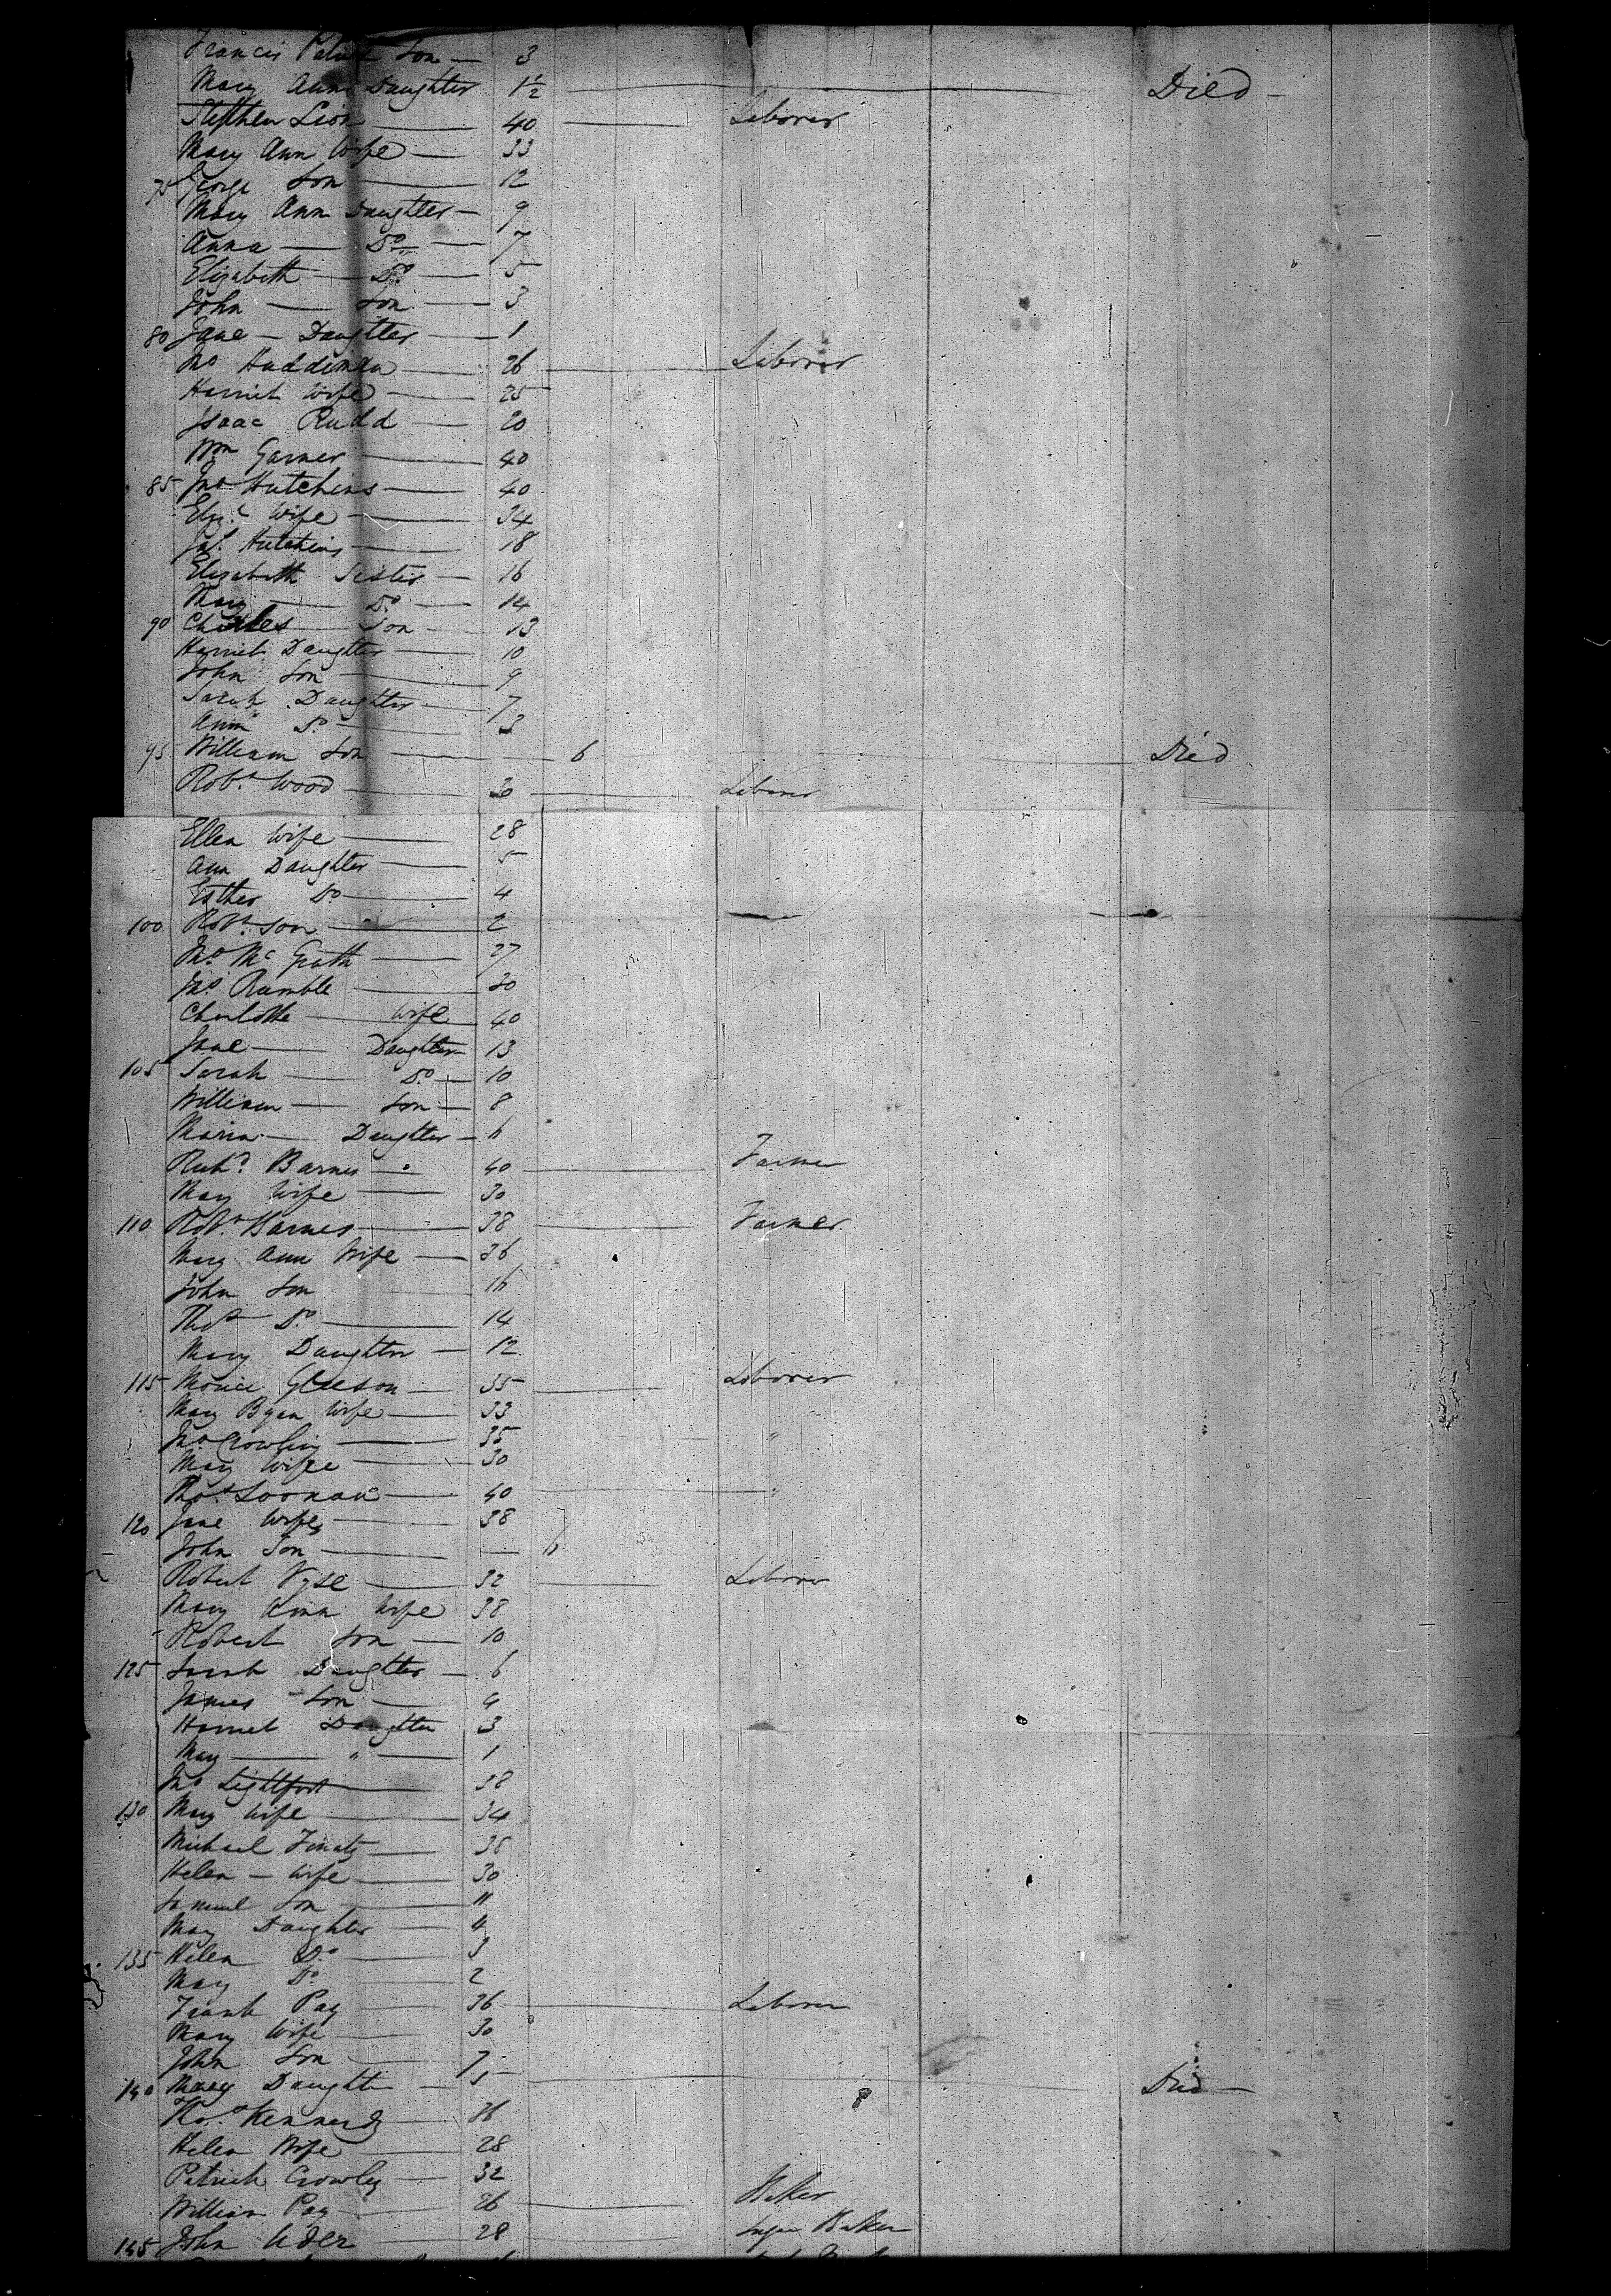 Francis Son 3
Mary Ann Daughter 1½ Died
Stephen Lion 40 Laborer
Mary Ann Wife 33
75 George Son 12
Mary Ann Daughter 9
Anna Do 7
Elizabeth Do 5
John Son 3
80 Jane Daughter 1
Jno 26 Laborer
Harriet Wife 25
Isaac Rudd 20
Wm Garner 40
85 Jno Hutchins 40
Eliz. Wife 34
Jas. Hutchins 18
Elizabeth Sister 16
Mary Do 14
90 Charles Son 13
Harriet Daughter 10
John Son 9
Sarah Daughter 7
Ann Do 3
95 William Son 6 Died
Robt Wood 30 Laborer
Ellen Wife 28
Ann Daughter 5
Esther Do 4
100 Robt Son 2
Jno McGrath 27
Jno Rumble 30
Charlotte Wife 40
Jane Daughter 13
105 Sarah Do 10
William Son 8
Maria Daughter 6
Richd Barnes 40 Farmer
Mary Wife 30
110 Robt Barnes 38 Farmer
Mary Ann Wife 36
John Son 16
Thos Do 14
Mary Daughter 12
115 Gleeson 35 Laborer
Mary Ryan Wife 33
Jno Crowling 35 "
Mary Wife 30
Thos 40 "
120 Jane Wife 38
John Son 6
Robert Vyse 32 Laborer
Mary Ann Wife 38
Robert Son 10
125 Sarah Daughter 6
James Son 4
Harriet Daughter 3
Mary " 1
Jno Lightfoot 38
130 Mary Wife 34
Michael 38
Helen Wife 30
Samuel Son 11
Mary Daughter 4
135 Helen Do 3
Mary Do 2
Frank Pay 36 Laborer
Mary Wife 30
John Son 7
140 Mary Daughter 5 Died
Thos Kennedy 36
Helen Wife 28
Patrick Crowley 32
William Pay 26 Baker
145 John Uder 28 Sugar Baker